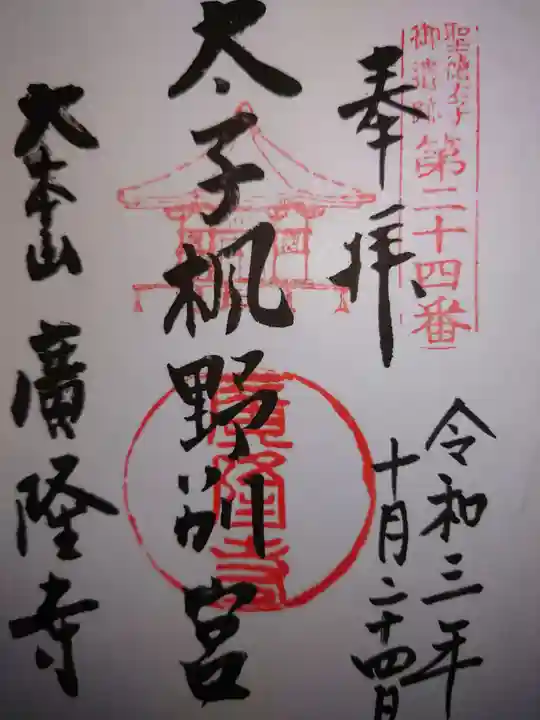 聖徳太子
御遺跡
第二十四番
奉拝
令和三年
十月二十四日
太子楓野別宮
廣隆寺
大本山 廣隆寺